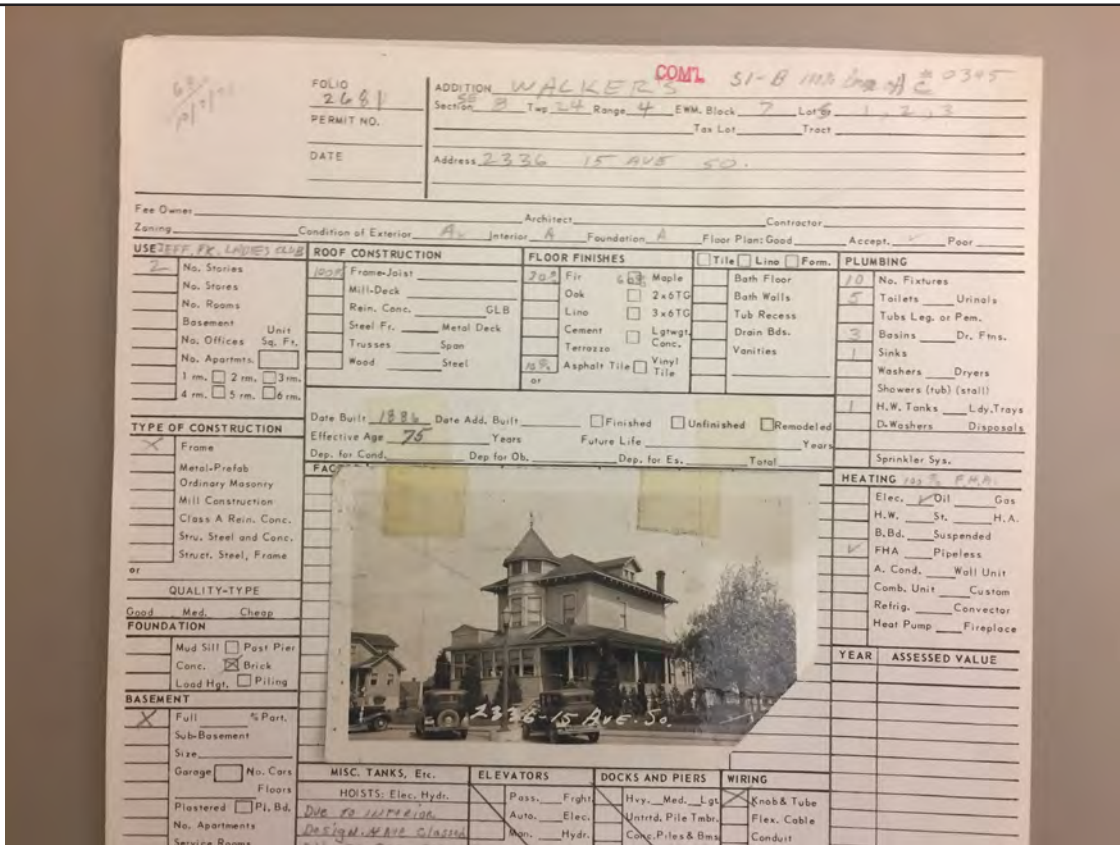 COM'L 51-B
FOLIO
2681
PERMIT NO.
DATE
ADDITION WALKER'S # 0395
Section SE 8 Twp 24 Range 4 EWM. Block 7 Lot 1, 2, 3
Tax Lot Tract
Address 2336 15 AVE SO.
Fee Owner Architect Contractor
Zoning Condition of Exterior A Interior A Foundation A Floor Plan: Good Accept. ✓ Poor
USE JEFF. PK. LADIES CLUB
2 No. Stories
No. Stores
No. Rooms
Basement Unit
No. Offices Sq. Ft.
No. Apartmts.
1 rm. 2 rm. 3 rm.
4 rm. 5 rm. 6 rm.
TYPE OF CONSTRUCTION
X Frame
Metal-Prefab
Ordinary Masonry
Mill Construction
Class A Rein. Conc.
Stru. Steel and Conc.
Struct. Steel, Frame
or
QUALITY-TYPE
Good Med. Cheap
FOUNDATION
Mud Sill Post Pier
Conc. X Brick
Load Hgt. Piling
BASEMENT
X Full % Part.
Sub-Basement
Size
Garage No. Cars
Floors
Plastered Pl. Bd.
No. Apartments
Service Rooms
ROOF CONSTRUCTION
100% Frame-Joist
Mill-Deck
Rein. Conc. GLB
Steel Fr. Metal Deck
Trusses Span
Wood Steel
FLOOR FINISHES
Fir Maple
Oak 2x6TG
Lino 3x6TG
Cement Lgtwgt.
Conc.
Terrazzo
10% Asphalt Tile Vinyl
Tile
or
Tile Lino Form.
Bath Floor
Bath Walls
Tub Recess
Drain Bds.
Vanities
PLUMBING
10 No. Fixtures
5 Toilets Urinals
Tubs Leg. or Pem.
3 Basins Dr. Ftns.
1 Sinks
Washers Dryers
Showers (tub) (stall)
1 H.W. Tanks Ldy.Trays
D.Washers Disposals
Sprinkler Sys.
Date Built 1886 Date Add. Built Finished Unfinished Remodeled
Effective Age 75 Years Future Life Years
Dep. for Cond. Dep for Ob. Dep. for Es. Total
HEATING 100% F.H.A.
Elec. ✓ Oil Gas
H.W. St. H.A.
B.Bd. Suspended
✓ FHA Pipeless
A. Cond. Wall Unit
Comb. Unit Custom
Refrig. Convector
Heat Pump Fireplace
YEAR ASSESSED VALUE
2336-15 AVE. SO.
MISC. TANKS, Etc.
HOISTS: Elec. Hydr.
DUE TO INTERIOR
Design. HAVE Classed
ELEVATORS
Pass. Frght.
Auto. Elec.
Man. Hydr.
DOCKS AND PIERS
Hvy. Med. Lgt.
Untrtd. Pile Tmbr.
Conc. Piles & Bms
WIRING
X Knob & Tube
Flex. Cable
Conduit